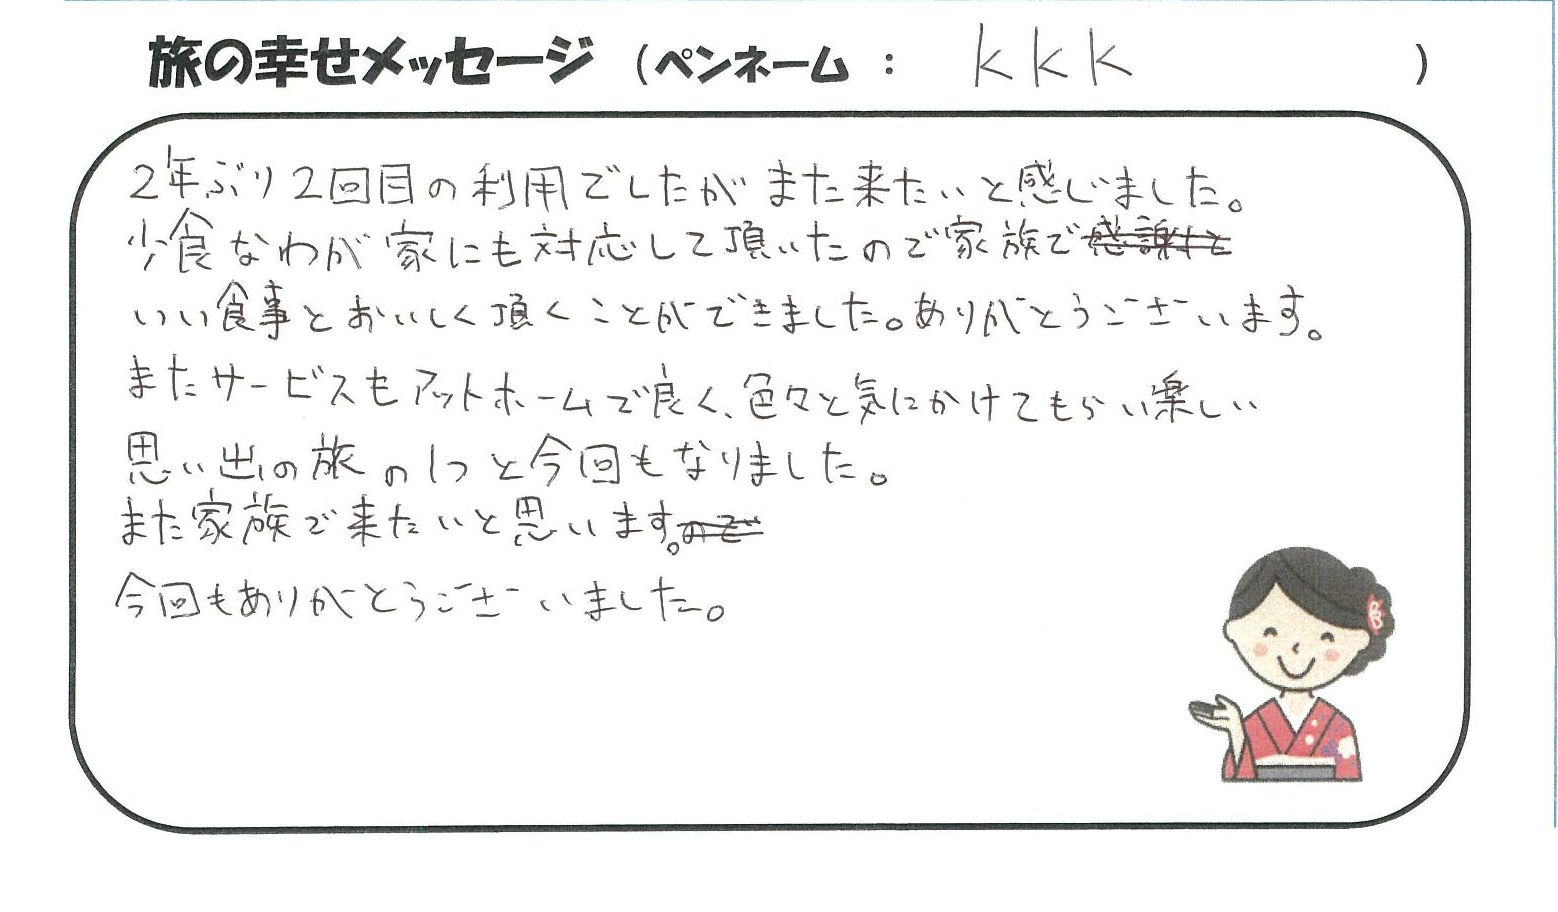 旅の幸せメッセージ (ペンネーム : kkk )
2年ぶり2回目の利用でしたがまた来たいと感じました。
少食なわが家にも対応して頂いたので家族で感謝と
いい食事とおいしく頂くことができました。ありがとうございます。
またサービスもアットホームで良く、色々と気にかけてもらい楽しい
思い出の旅の1つと今回もなりました。
また家族で来たいと思います。ので
今回もありがとうございました。